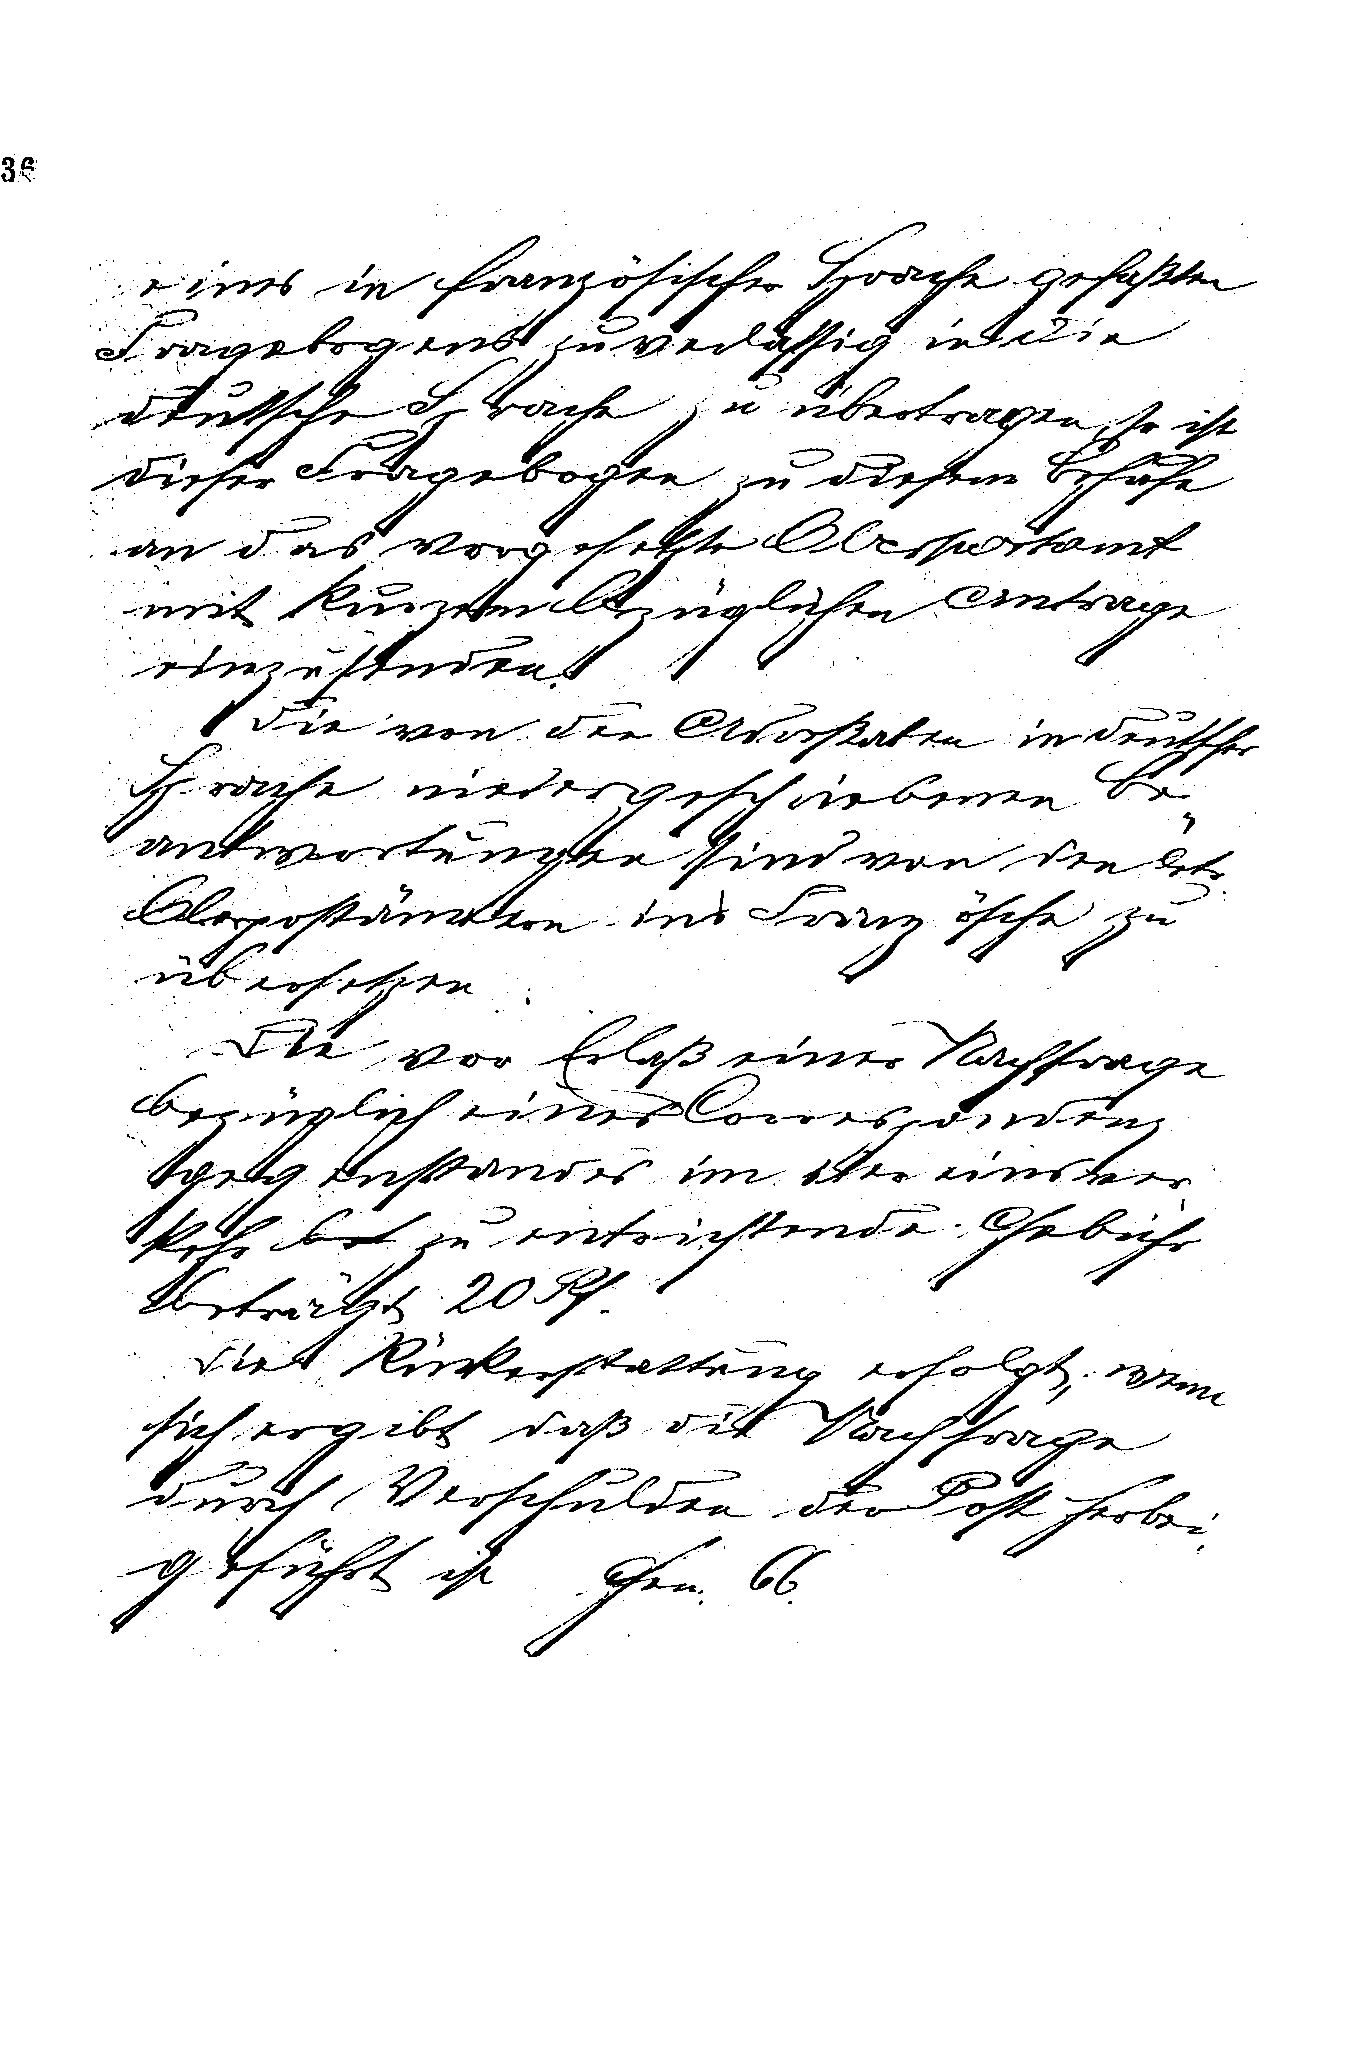 36
eines in französischer Sprache gefaßten
Fragebogens zuverlässig in die
deutsche Sprache zu übertragen, so ist
dieser Fragebogen zu diesem Behufe
an das vorgesetzte Oberpostamt
mit kurzem bezüglichen Antrage
einzusenden.
Die von den Adreßaten in deutscher
Sprache niedergeschriebenen Be-
antwortungen sind von den betr.
Oberpostämtern ins Französche zu
übersetzen.
Die vor Erlaß einer Nachfrage
bezüglich eines Correspondenz
gegenstandes im Vereinsver
kehr zu entrichtende Gebühr
beträgt 20 Pf.
Die Rückerstattung erfolgt, wenn
sich ergibt daß die Nachfrage
durch Verschulden der Post herbei-
geführt ist Gen. 66.